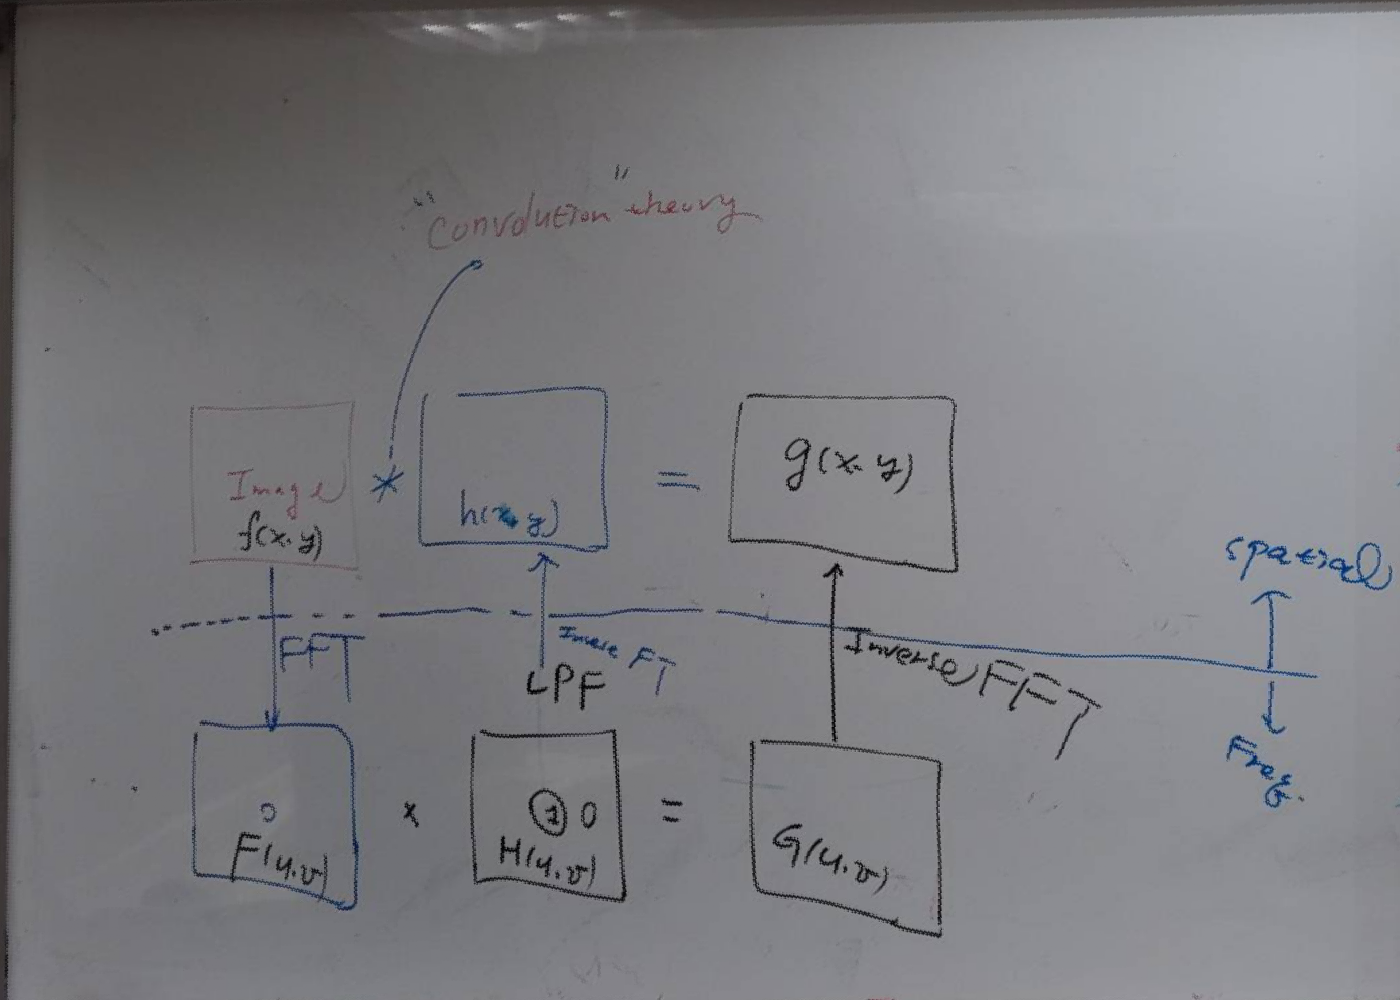 "convolution" theory
Image
f(x.y)
*
h(x.y)
=
g(x.y)
spatial
FFT
Inverse FT
LPF
Inverse FFT
Freq.
F(u.v)
x
1 0
H(u.v)
=
G(u.v)